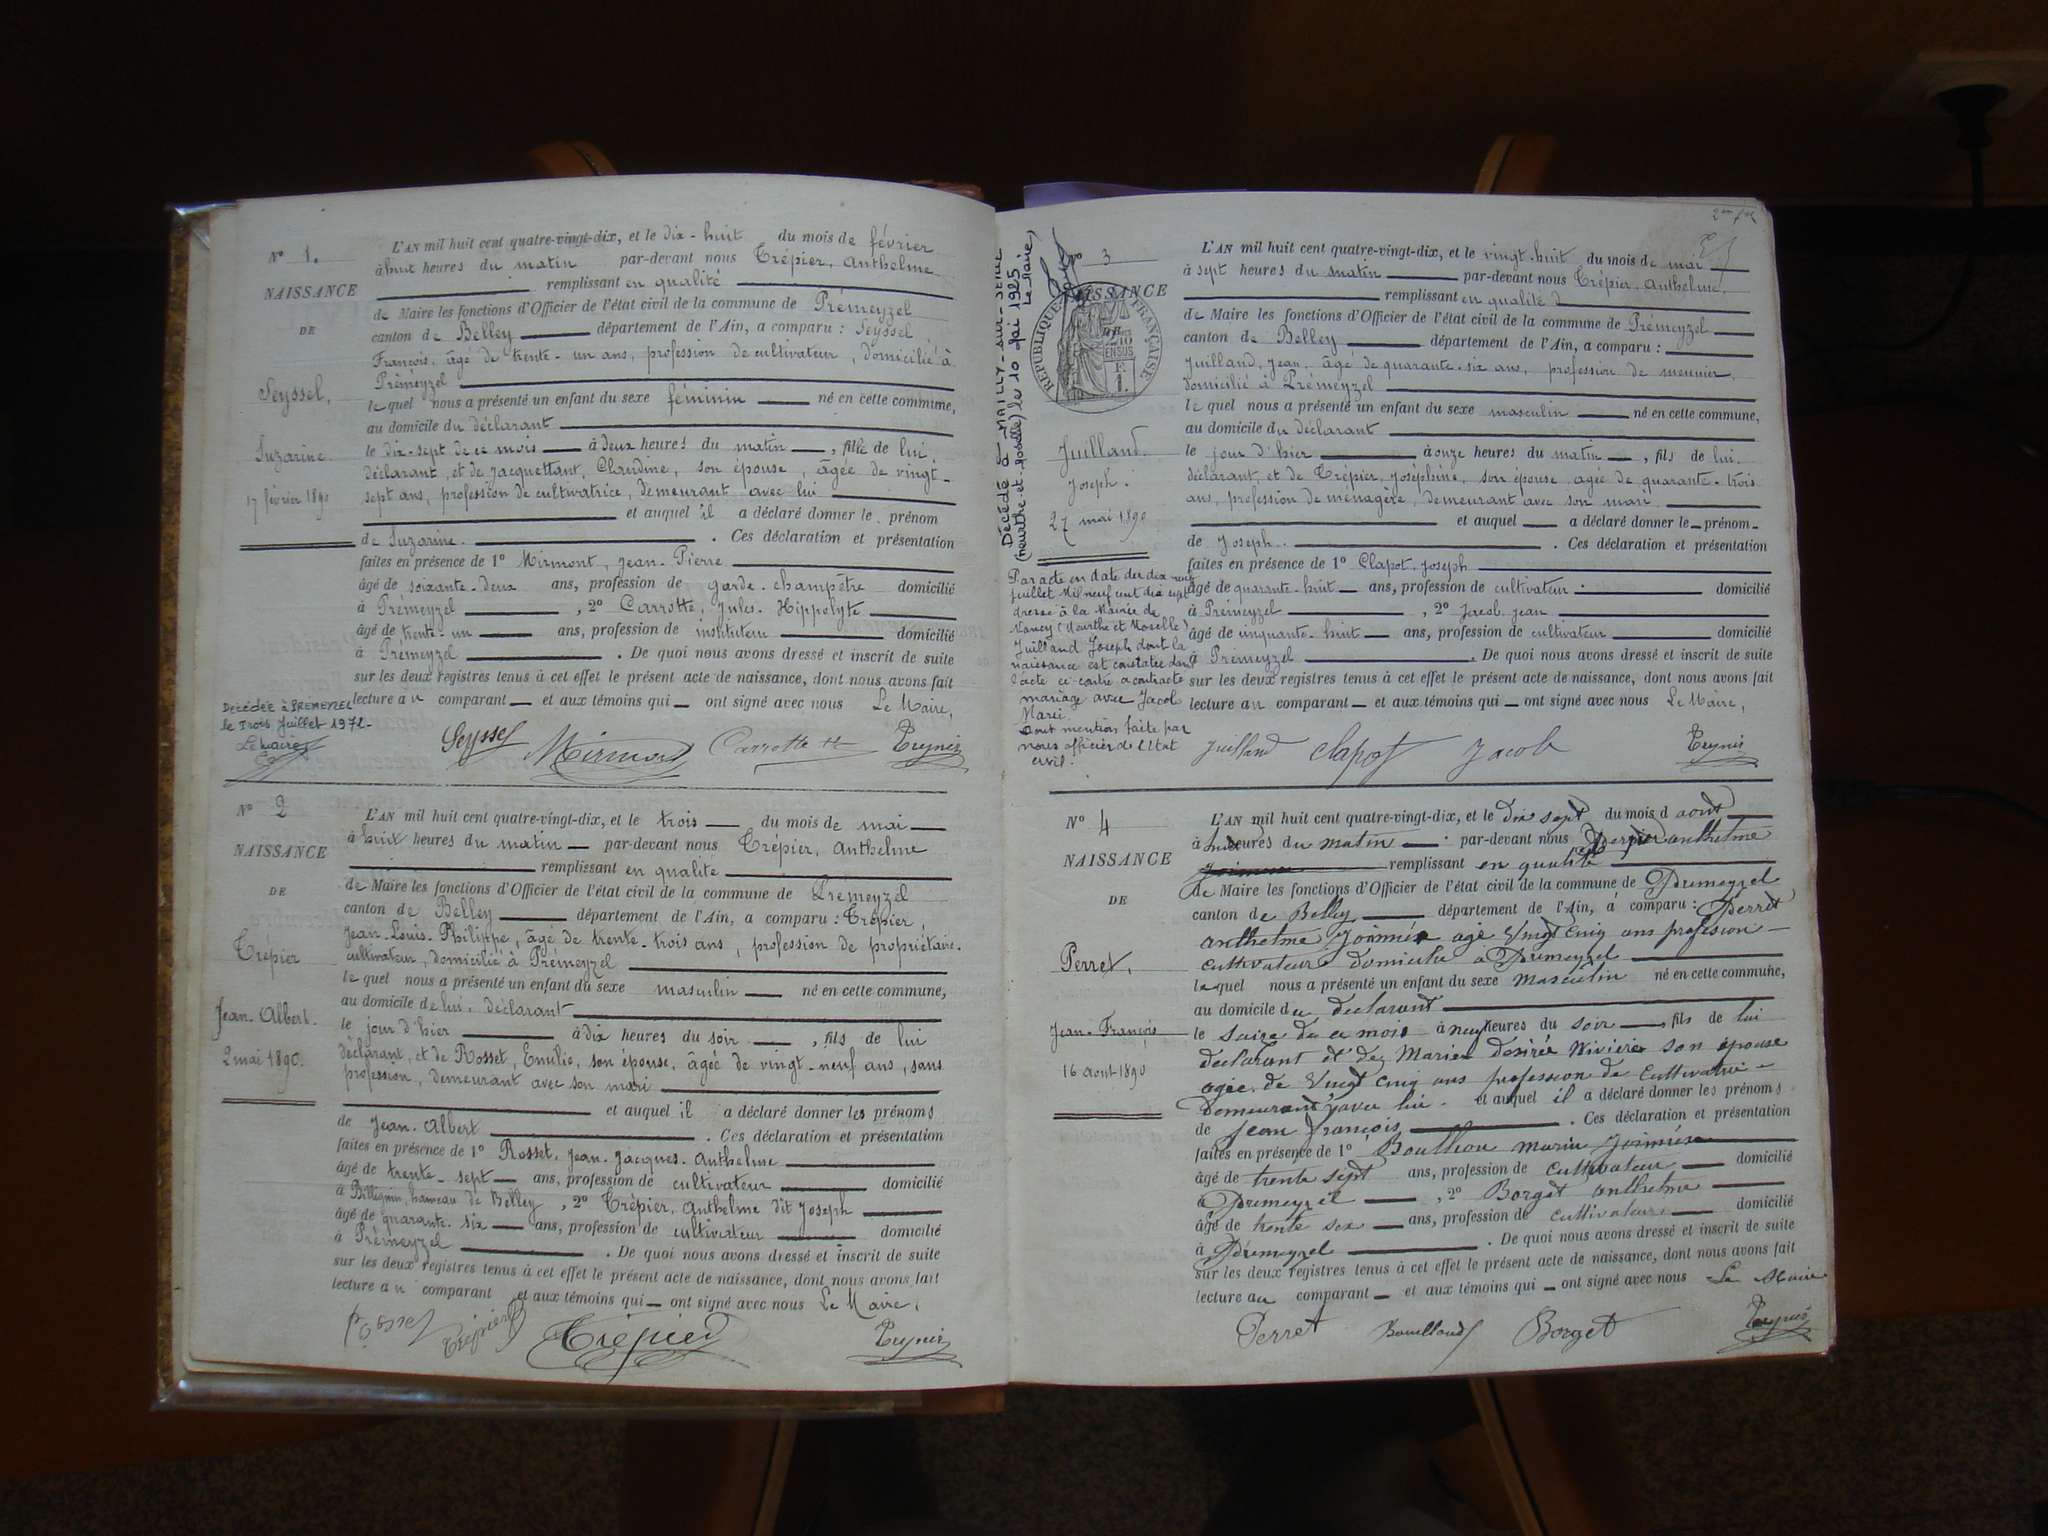 N° 1.
NAISSANCE
DE
Seyssel,
Suzarine.
17 février 1890
Décédée à PREMEYZEL
le Trois Juillet 1972-
Le Maire
L'AN mil huit cent quatre-vingt-dix, et le dix-huit du mois de février
à huit heures du matin par-devant nous Trépier, Anthelme
remplissant en qualité
de Maire les fonctions d'Officier de l'état civil de la commune de Prémeyzel
canton de Belley département de l'Ain, a comparu : Seyssel
François, âgé de trente-un ans, profession de cultivateur, domicilié à
Prémeyzel
lequel nous a présenté un enfant du sexe féminin né en cette commune,
au domicile du déclarant
le dix-sept de ce mois à deux heures du matin, fille de lui,
déclarant, et de Jacquettant, Claudine, son épouse, âgée de vingt-
sept ans, profession de cultivatrice, demeurant avec lui
et auquel il a déclaré donner le prénom
de Suzarine. . Ces déclaration et présentation
faites en présence de 1° Mirmont, Jean-Pierre
âgé de soixante-deux ans, profession de garde-champêtre domicilié
à Prémeyzel , 2° Carrotte, Jules-Hippolyte
âgé de trente-un ans, profession de instituteur domicilié
à Prémeyzel . De quoi nous avons dressé et inscrit de suite
sur les deux registres tenus à cet effet le présent acte de naissance, dont nous avons fait
lecture au comparant et aux témoins qui ont signé avec nous Le Maire,
Seyssel Mirmont Carrotte
N° 2
NAISSANCE
DE
Trépier
Jean-Albert.
2 mai 1890.
L'AN mil huit cent quatre-vingt-dix, et le trois du mois de mai
à huit heures du matin par-devant nous Trépier, Anthelme
remplissant en qualité
de Maire les fonctions d'Officier de l'état civil de la commune de Prémeyzel
canton de Belley département de l'Ain, a comparu : Trépier,
Jean-Louis-Philippe, âgé de trente-trois ans, profession de propriétaire-
cultivateur, domicilié à Prémeyzel
lequel nous a présenté un enfant du sexe masculin né en cette commune,
au domicile de lui, déclarant
le jour d'hier à dix heures du soir , fils de lui
déclarant, et de Rosset, Emilie, son épouse, âgée de vingt-neuf ans, sans
profession, demeurant avec son mari
et auquel il a déclaré donner les prénoms
de Jean-Albert . Ces déclaration et présentation
faites en présence de 1° Rosset, Jean-Jacques-Anthelme
âgé de trente-sept ans, profession de cultivateur domicilié
à Billignin, hameau de Belley , 2° Trépier, Anthelme dit Joseph
âgé de quarante-six ans, profession de cultivateur domicilié
à Prémeyzel . De quoi nous avons dressé et inscrit de suite
sur les deux registres tenus à cet effet le présent acte de naissance, dont nous avons fait
lecture au comparant et aux témoins qui ont signé avec nous Le Maire,
Rosset Trépier Trépier
2me
N° 3
NAISSANCE
RÉPUBLIQUE FRANÇAISE
Décédé à MAILLY-sur-SEILLE
(Meurthe et Moselle) le 10 Mai 1925
Le Maire,
Juilland.
Joseph.
27 mai 1890
Par acte en date du dix neuf
juillet Mil neuf cent dix sept
dressé à la Mairie de
Nancy (Meurthe et Moselle)
Juilland Joseph dont la
naissance est constatée dans
l'acte ci-contre a contracté
mariage avec Jacob
Marie.
Dont mention faite par
nous officier de l'Etat
civil.
L'AN mil huit cent quatre-vingt-dix, et le vingt-huit du mois de mai
à sept heures du matin par-devant nous Trépier, Anthelme,
remplissant en qualité
de Maire les fonctions d'Officier de l'état civil de la commune de Prémeyzel
canton de Belley département de l'Ain, a comparu :
Juilland, Jean, âgé de quarante-six ans, profession de meunier,
domicilié à Prémeyzel
lequel nous a présenté un enfant du sexe masculin né en cette commune,
au domicile du déclarant
le jour d'hier à onze heures du matin , fils de lui,
déclarant et de Trépier, Joséphine, son épouse, âgée de quarante-trois
ans, profession de ménagère, demeurant avec son mari
et auquel a déclaré donner le prénom
de Joseph . Ces déclaration et présentation
faites en présence de 1° Clapot, Joseph
âgé de quarante-huit ans, profession de cultivateur domicilié
à Prémeyzel , 2° Jacob, Jean
âgé de cinquante-huit ans, profession de cultivateur domicilié
à Prémeyzel . De quoi nous avons dressé et inscrit de suite
sur les deux registres tenus à cet effet le présent acte de naissance, dont nous avons fait
lecture au comparant et aux témoins qui ont signé avec nous Le Maire,
Juilland Clapot Jacob
N° 4
NAISSANCE
DE
Perret,
Jean-François
16 août 1890
L'AN mil huit cent quatre-vingt-dix, et le dix sept du mois d août
à heures du matin par-devant nous anthelme
remplissant en qualité
de Maire les fonctions d'Officier de l'état civil de la commune de Prémeyzel
canton de Belley département de l'Ain, a comparu : Perret
anthelme Joinmée agé vingt cinq ans profession
cultivateur domicilié à Prémeyzel
lequel nous a présenté un enfant du sexe masculin né en cette commune,
au domicile du declarant
le Saize de ce mois à neuf heures du soir , fils de lui
declarant et de Marie desirée Riviere son épouse
agée de vingt cinq ans profession de
demeurant avec lui et auquel il a déclaré donner les prénoms
de Jean françois . Ces déclaration et présentation
faites en présence de 1° marin
âgé de trente sept ans, profession de cultivateur domicilié
à Premeyzel , 2° Borget anthelme
âgé de trente six ans, profession de cultivateur domicilié
à Prémeyzel . De quoi nous avons dressé et inscrit de suite
sur les deux registres tenus à cet effet le présent acte de naissance, dont nous avons fait
lecture au comparant et aux témoins qui ont signé avec nous Le Maire
Perret Bouilloud Borget